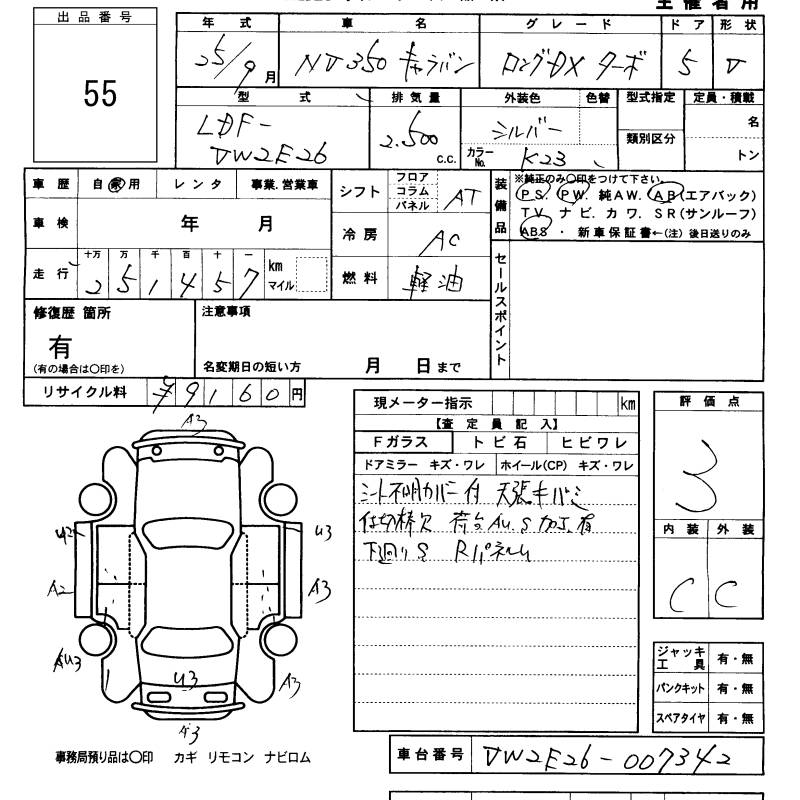 主催者用
出品番号
55
年式 車名 グレード ドア 形状
25/9月 NV350 キャラバン ロングDX ターボ 5 V
型式 排気量 外装色 色替 型式指定 定員・積載
LDF-
VW2E26
2.500 c.c.
シルバー
カラーNo. K23
類別区分
名
トン
車歴 自家用 レンタ 事業.営業車
シフト フロア コラム パネル AT
装備品
※純正のみ〇印をつけて下さい。
PS. PW. 純AW. AB(エアバック)
TV ナビ. カワ. SR(サンルーフ)
ABS ・ 新車保証書←(注) 後日送りのみ
車検 年 月
冷房 AC
走行 十万 万 千 百 十 一
251457 km マイル
燃料 軽油
セールスポイント
修復歴 箇所
有
(有の場合は〇印を)
注意事項
名変期日の短い方 月 日まで
リサイクル料 ¥9160円
現メーター指示 km
【査定員記入】
Fガラス トビ石 ヒビワレ
ドアミラー キズ・ワレ ホイール(CP) キズ・ワレ
シート不明カバー付 天張キバミ
仕切棒欠 荷台AU.S 加工有
下廻りS Rパネルu
評価点
3
内装 外装
C C
A3
U2 U3
A2 A3
AU3 U3 A3
A3
ジャッキ工具 有・無
パンクキット 有・無
スペアタイヤ 有・無
事務局預り品は〇印 カギ リモコン ナビロム
車台番号 VW2E26-007342